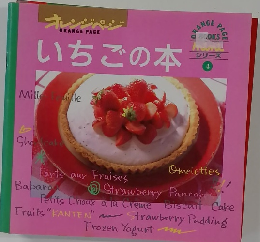 オレンジページ
ORANGE PAGE
ORANGE PAGE
シリーズ
4
いちごの本
Mille
Tarts aux Fraises
Omelettes
Babara
Strawberry Pancake
Petits Choux à la Crème Biscuit Cake
Fruits "KANTEN" Strawberry Pudding
Frozen Yogurt